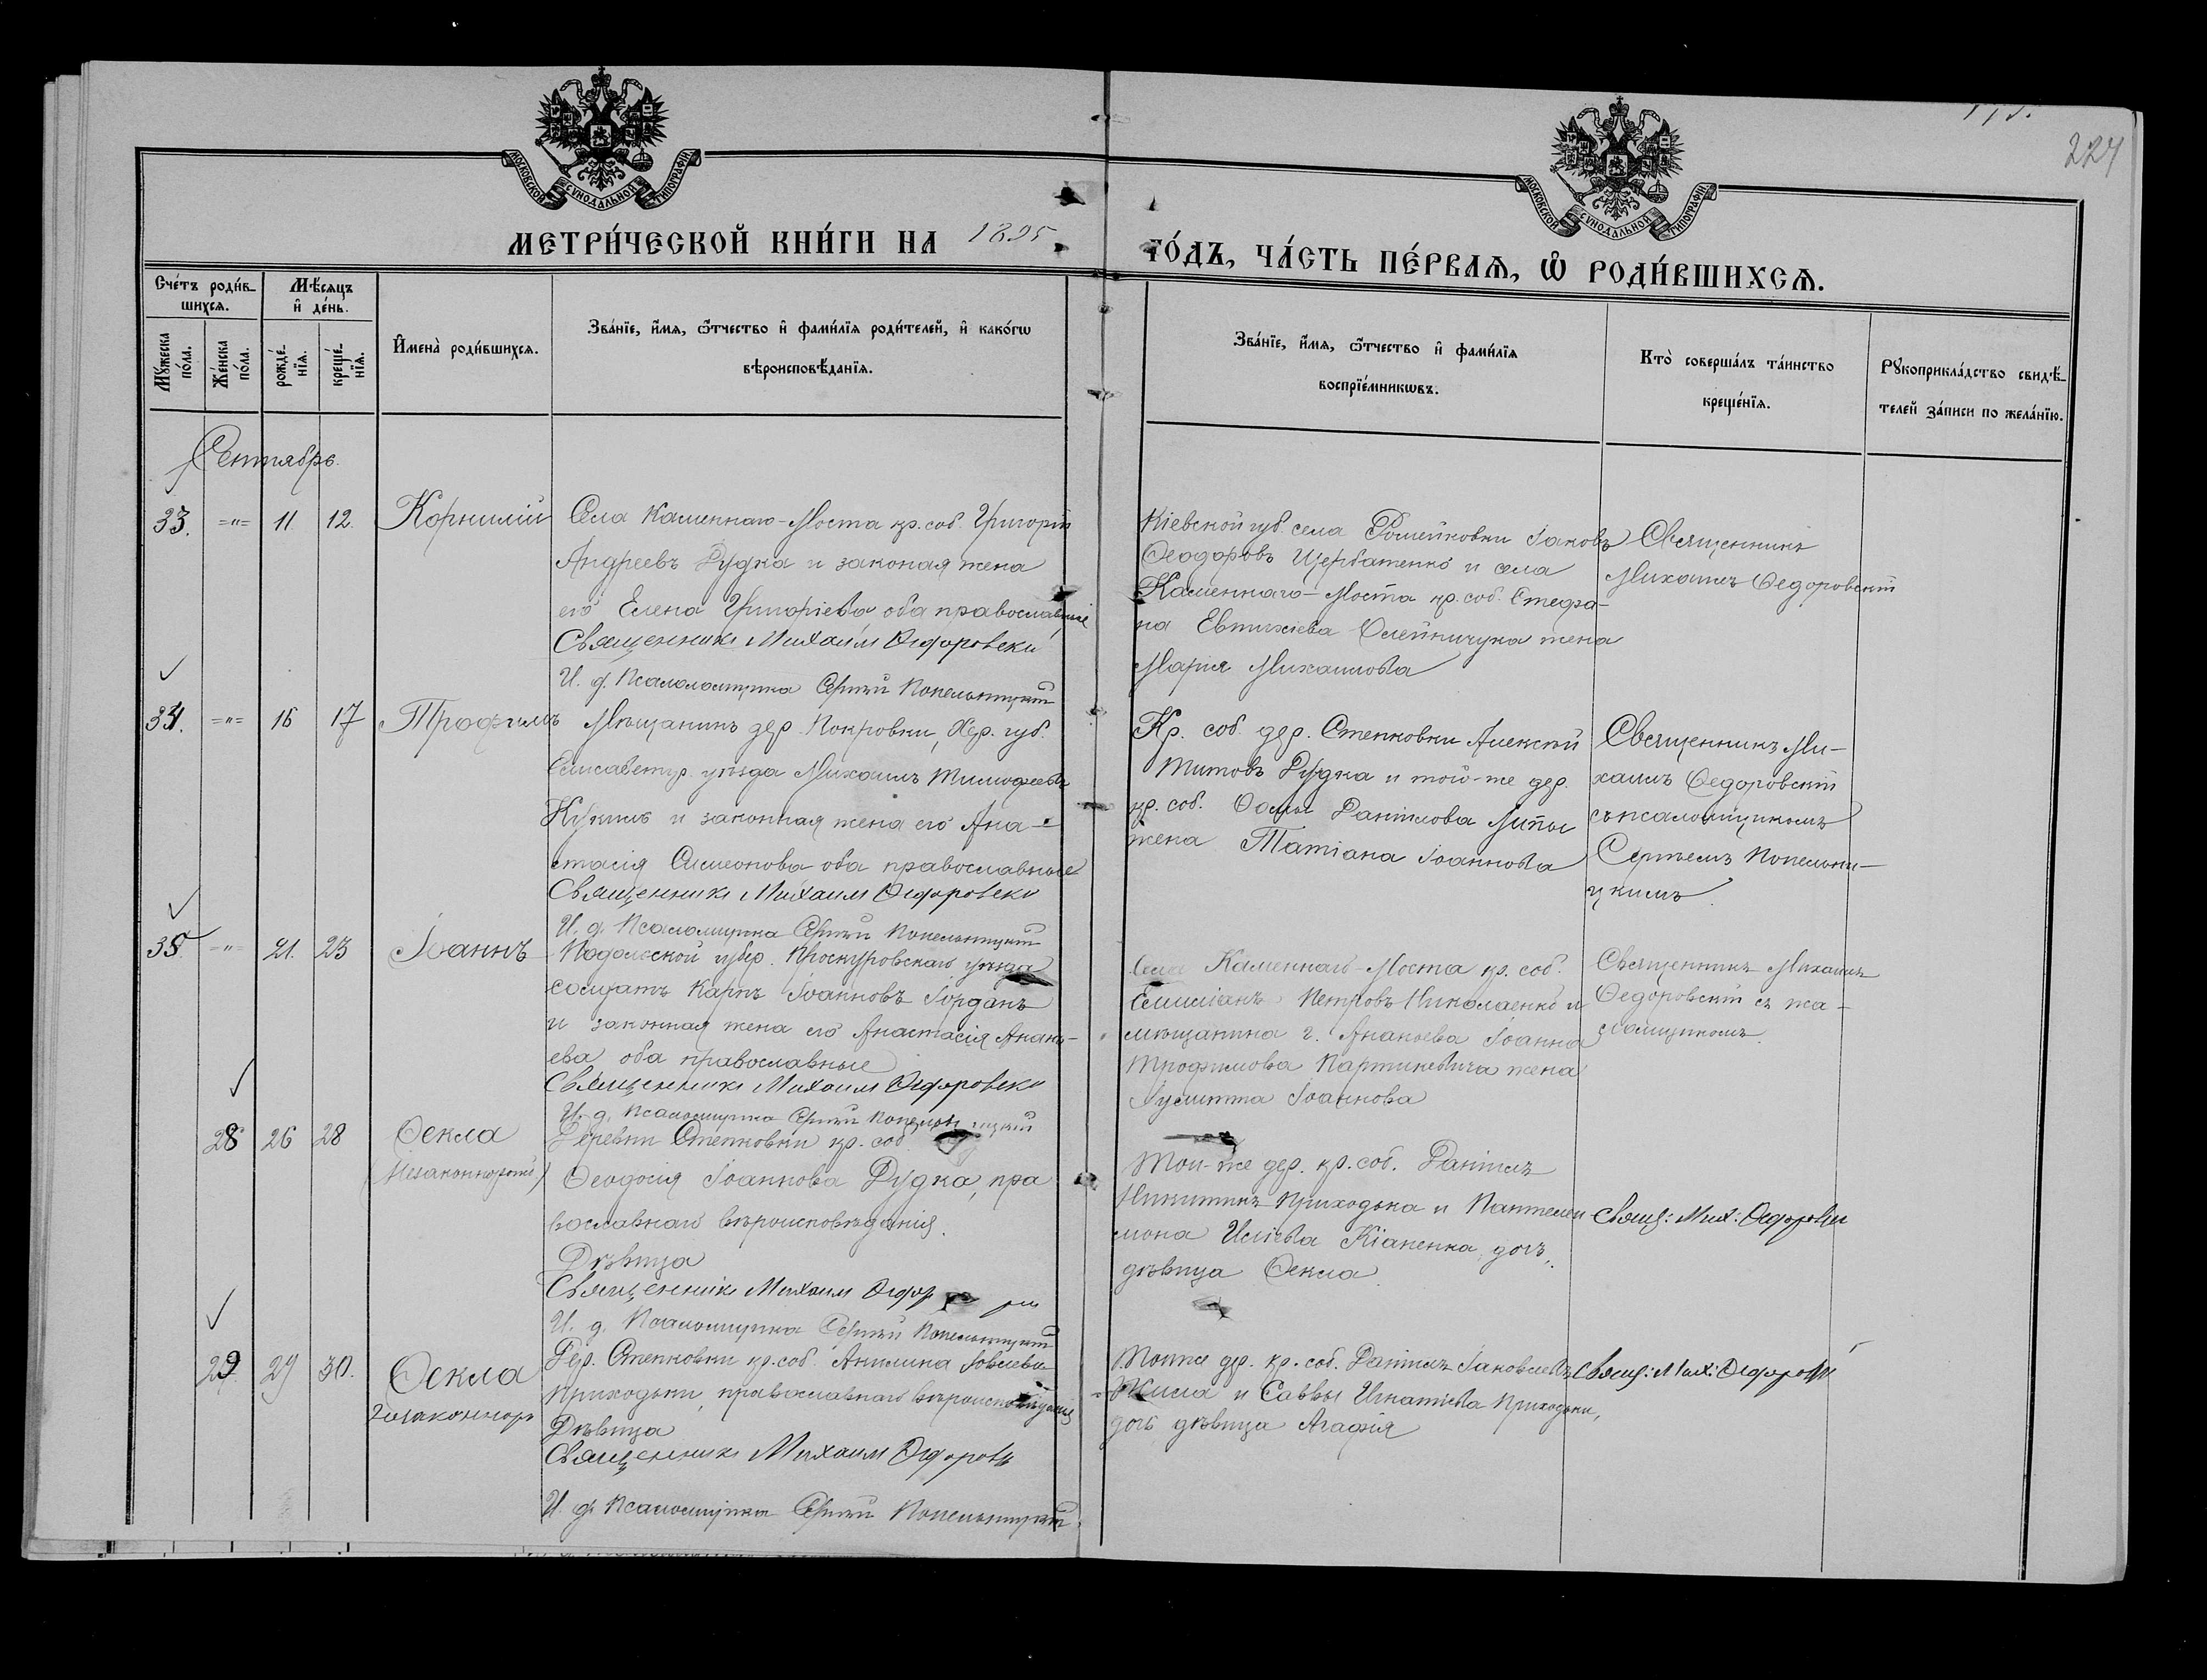 МОСКОВСКОЙ СУНОДАЛЬНОЙ ТИПОГРАФІИ
МОСКОВСКОЙ СУНОДАЛЬНОЙ ТИПОГРАФІИ
224
МЕТРИ́ЧЕСКОЙ КНИ́ГИ НА 1895
ГО́ДЪ, ЧА́СТЬ ПЕ́РВАѦ, Ѡ҆ РОДИ́ВШИХСѦ.
Сче́тъ роди́в-
шихсѧ.
Мꙋ́жеска по́ла.
Же́нска по́ла.
Мѣ́сѧцъ
и҆ де́нь.
рожде́-нїѧ.
креще́-нїѧ.
И҆мена̀ роди́вшихсѧ.
Зва́нїе, и҆́мѧ, ѻ҆́тчество и҆ фами́лїѧ роди́телей, и҆ како́гѡ
вѣроисповѣ́данїѧ.
Зва́нїе, и҆́мѧ, ѻ҆́тчество и҆ фами́лїѧ
воспрїе́мникѡвъ.
Кто̀ соверша́лъ та́инство
креще́нїѧ.
Рꙋкоприкла́дство свидѣ́-
телей за́писи по жела́нїю.
Сентябрь.
33. =„= 11 12. Корнилій
Села Каменнаго-Моста кр. соб. Григорій
Андреевъ Рудка и законая жена
его Елена Григоріева оба православные
Священникъ Михаилъ Ѳедоровскій
И. д. Псаломщика Сергѣй Попельницкій
Кіевской губ. села Іаковъ
Ѳеодоровъ Щербатенко и села
Каменнаго-Моста кр. соб. Стефа-
на Евтихіева Олейничука жена
Марія Михаилова
Священникъ
Михаилъ Ѳедоровскій
34. =„= 16 17 Трофимъ
Мѣщанинъ дер. Покровки, Хер. губ.
Елисаветгр. уѣзда Михаилъ Тимофеевъ
и законная жена его Ана-
стасія Симеонова оба православные
Священникъ Михаилъ Ѳедоровскій
И. д. Псаломщика Сергѣй Попельницкій
Кр. соб. дер. Степковки Алексѣй
Титовъ Рудка и той-же дер.
кр. соб. Ѳомы Даніилова Липы
жена Татіана Іоаннова
Священникъ Ми-
хаилъ Ѳедоровскій
съ псаломщикомъ
Сергѣемъ Попельни-
цкимъ.
35. =„= 21. 23 Іоаннъ
Подольской губер. Проскуровскаго уѣзда
солдатъ Карпъ Іоанновъ Іорданъ
и законная жена его Анастасія Анань-
ева оба православные
Священникъ Михаилъ Ѳедоровскій
И. д. Псаломщика Сергѣй Попельницкій
Села Каменнаго-Моста кр. соб.
Емиліанъ Петровъ Николаенко и
мѣщанина г. Ананьева Іоанна
Трофимова жена
Іулитта Іоаннова
Священникъ Михаилъ
Ѳедоровскій съ пса-
ломщикомъ.
28 26 28 Ѳекла
(Незаконнорожд)
Деревни Степковки кр. соб.
Ѳеодосія Іоаннова Рудка, пра
вославнаго вѣроисповѣданія.
Дѣвица
Священникъ Михаилъ
И. д. Псаломщика Сергѣй Попельницкій
Той-же дер. кр. соб. Даніилъ
Никитинъ Приходька и Пантелеи
мона Иліева Кіаненка дочь,
дѣвица Ѳекла.
Свящ: Мих: Ѳедоровскій
29 29 30. Ѳекла
незаконнор
Дер. Степковки кр. соб. Акилина Іовлева
Приходьки, православнаго вѣроисповѣданія
Дѣвица
Священникъ Михаилъ Ѳедоровск
И. д. Псаломщика Сергѣй Попельницкій.
Тойже дер. кр. соб. Даніилъ Іаковлевъ
и Саввы Игнатіева Приходьки,
дочь дѣвица Агафія
Свящ: Мих: Ѳедоровскій